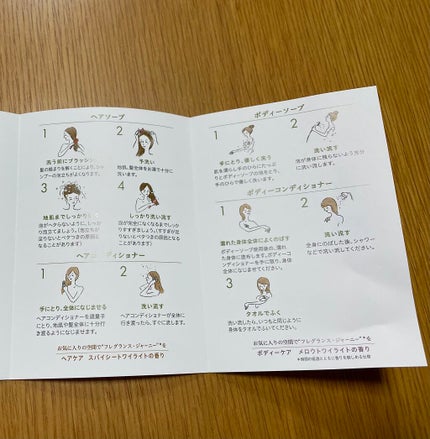 ヘアソープ
1
2
洗う前にブラッシング
髪の絡まりを解くことにより、シャ
ンプーの泡立ちがよくなります。
予洗い
地肌、髪全体をお湯で十分に
洗います。
3
4
地肌までしっかり
泡がへたらないように、しっか
り泡立てましょう。(泡立ちが
足りないとベタつきの原因と
なることがあります)
しっかり洗い流す
泡が完全になくなるまでしっかり
すすぎましょう。(すすぎが足
りないとベタつきの原因となる
ことがあります)
ヘアコンディショナー
1
2
手にとり、全体になじませる
ヘアコンディショナーを適量手
にとり、地肌や髪全体に十分行
き渡るようになじませます。
洗い流す
ヘアコンディショナーが全体に
行き渡ったら、すぐに流します。
お気に入りの空間で"フレグランス・ジャーニー"*を
ヘアケア スパイシートワイライトの香り
ボディーソープ
1
2
手にとり、優しく洗う
肌を濡らし手のひらにたっぷ
りとボディーソープの泡をとり、
手のひらで優しく洗います。
洗い流す
泡が身体に残らないよう十分
に洗い流します。
ボディーコンディショナー
1
2
濡れた身体全体によくのばす
ボディーソープ使用後の、濡れ
た身体に塗布します。ボディーコ
ンディショナーを手に取り、身体
全体になじませてください。
洗い流す
全身にのばした後、シャワー
などで洗い流してください。
3
タオルでふく
洗い流したら、いつもと同じように
身体をタオルでふいてください。
お気に入りの空間で"フレグランス・ジャーニー"*を
ボディーケア メロウトワイライトの香り